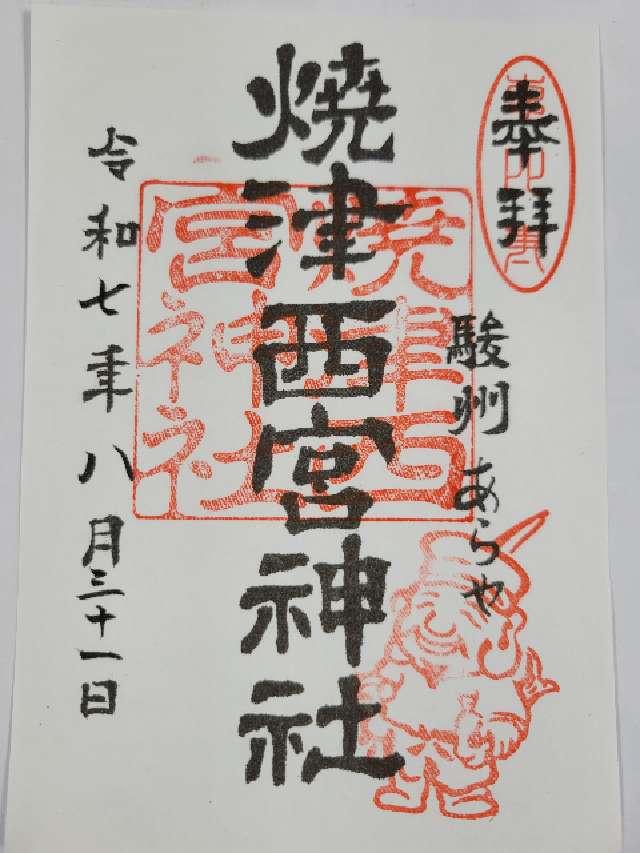 奉拝
駿州 あらや
焼津西宮神社
焼津西宮神社
令和七年八月三十一日